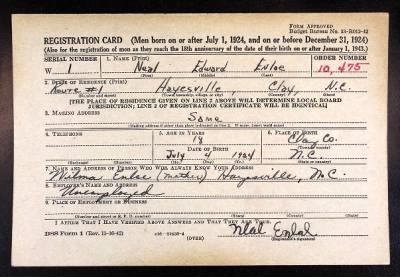 FORM APPROVED
Budget Bureau No. 33-R012-42
REGISTRATION CARD—(Men born on or after July 1, 1924, and on or before December 31, 1924)
(Also for the registration of men as they reach the 18th anniversary of the date of their birth on or after January 1, 1943.)
SERIAL NUMBER 1. NAME (Print) ORDER NUMBER
W 1 Neal Edward Enloe 10,475
(First) (Middle) (Last)
2. PLACE OF RESIDENCE (Print)
Route #1 Hayesville, Clay, N.C.
(Number and street) (Town, township, village, or city) (County) (State)
[THE PLACE OF RESIDENCE GIVEN ON LINE 2 ABOVE WILL DETERMINE LOCAL BOARD
JURISDICTION; LINE 2 OF REGISTRATION CERTIFICATE WILL BE IDENTICAL]
3. MAILING ADDRESS
Same
4. TELEPHONE 5. AGE IN YEARS 6. PLACE OF BIRTH
18 Clay Co.
DATE OF BIRTH (Town or county)
July 4 1924 N.C.
(Exchange) (Number) (Mo.) (Day) (Yr.) (State or country)
7. NAME AND ADDRESS OF PERSON WHO WILL ALWAYS KNOW YOUR ADDRESS
Wilma Enloe (mother) Hayesville, N.C.
8. EMPLOYER'S NAME AND ADDRESS
Unemployed
9. PLACE OF EMPLOYMENT OR BUSINESS
(Number and street or R. F. D. number) (Town) (County) (State)
I AFFIRM THAT I HAVE VERIFIED ABOVE ANSWERS AND THAT THEY ARE TRUE.
DSS Form 1 (Rev. 11-16-42) (OVER) Neal Enloe
(Registrant's signature)